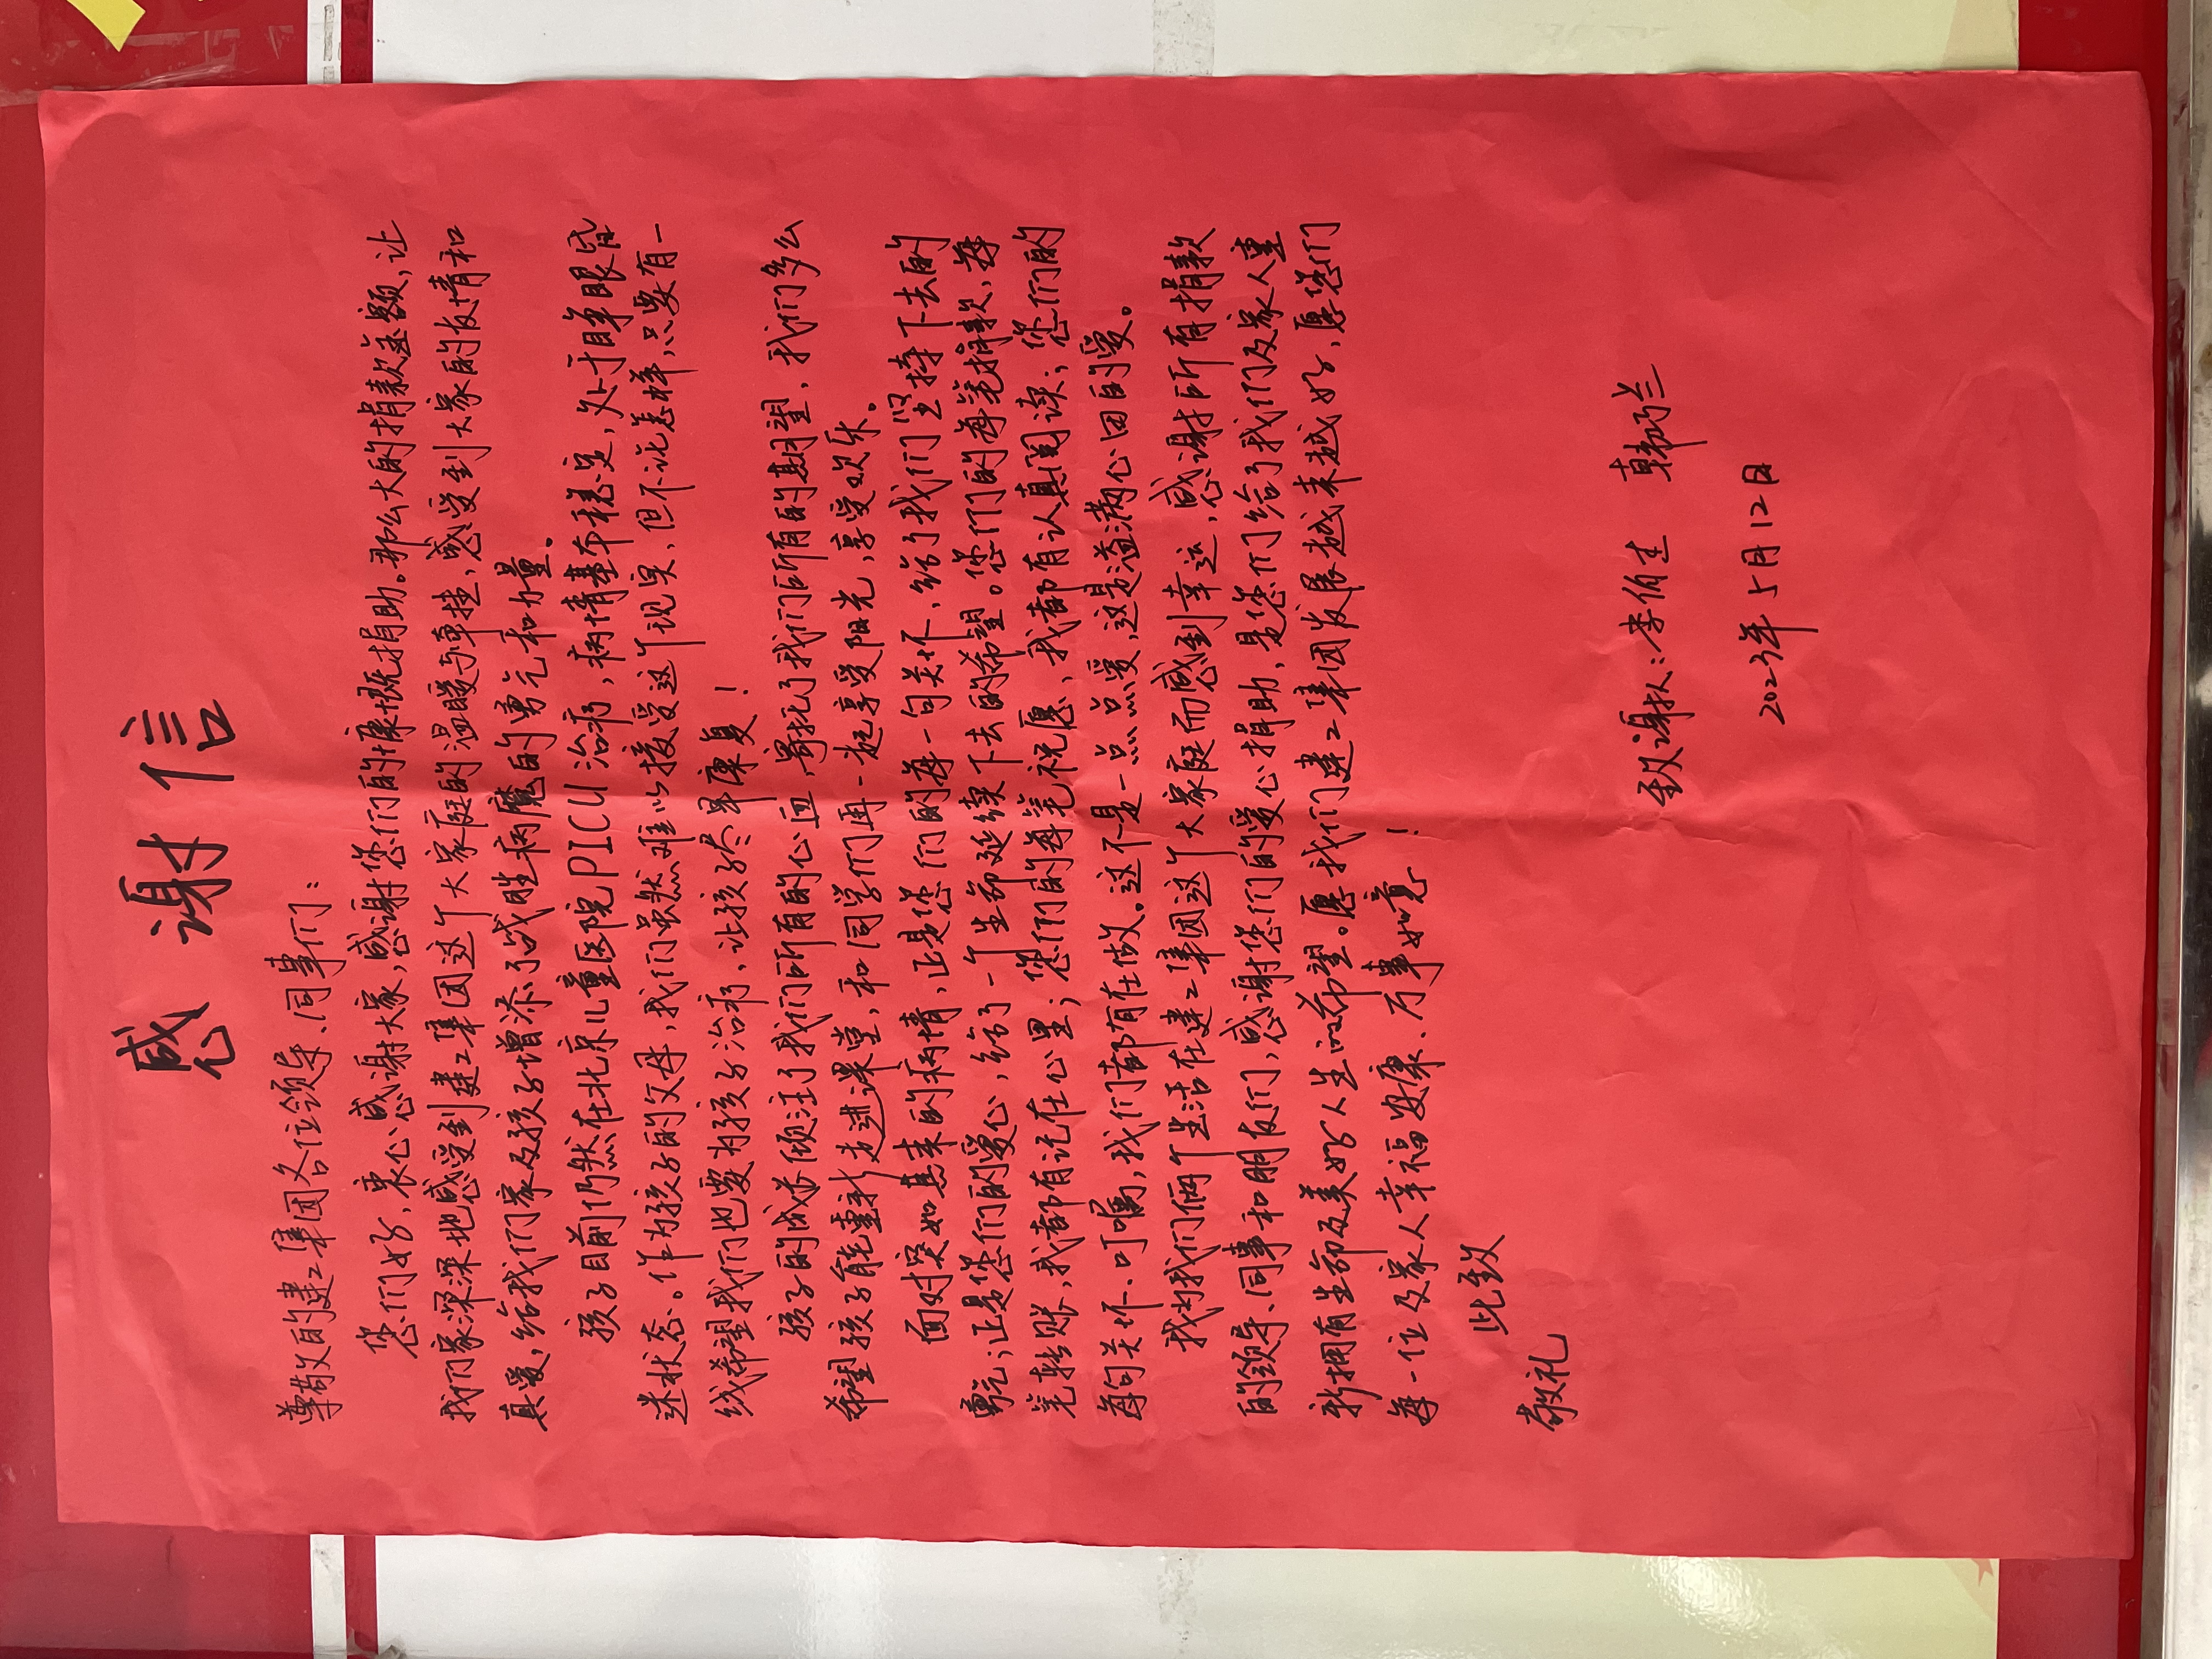 感谢信
尊敬的建工集团各位领导、同事们：
您们好，衷心感谢大家，感谢您们的慷慨捐助。那么大的捐款金额，让
我们家深深地感受到建工集团这个大家庭的温暖与牵挂，感受到大家的友情和
真爱，给我们家及孩子增添了战胜病魔的勇气和力量。
孩子目前仍然在北京儿童医院PICU治疗，病情基本稳定，处于睁眼昏
迷状态。作为孩子的父母，我们虽然难以接受这个现实，但不论怎样，只要有一
线希望我们也要为孩子治疗，让孩子尽早康复！
孩子的成长倾注了我们所有的心血，寄托了我们所有的期望，我们多么
希望孩子能重新走进课堂，和同学们再一起享受阳光，享受欢乐。
面对突如其来的病情，正是您们的每一句关怀，给了我们坚持下去的
勇气；正是您们的爱心，给了一个生命延续下去的希望。您们的每笔捐款，每
笔转账，我都有记在心里；您们的每笔祝愿，我都有认真阅读；您们的
每句关怀、叮嘱，我们都有在做。这不是一点点爱，这是溢满心田的爱。
我为我们俩个生活在建工集团这个大家庭而感到幸运，感谢所有捐款
的领导、同事和朋友们，感谢您们的爱心捐助，是您们给了我们及家人重
新拥有生命及美好人生的希望。愿我们建工集团发展越来越好，愿您们
每一位及家人幸福安康、万事如意！
此致
敬礼
致谢人：李伯生 韩巧兰
2023年5月12日